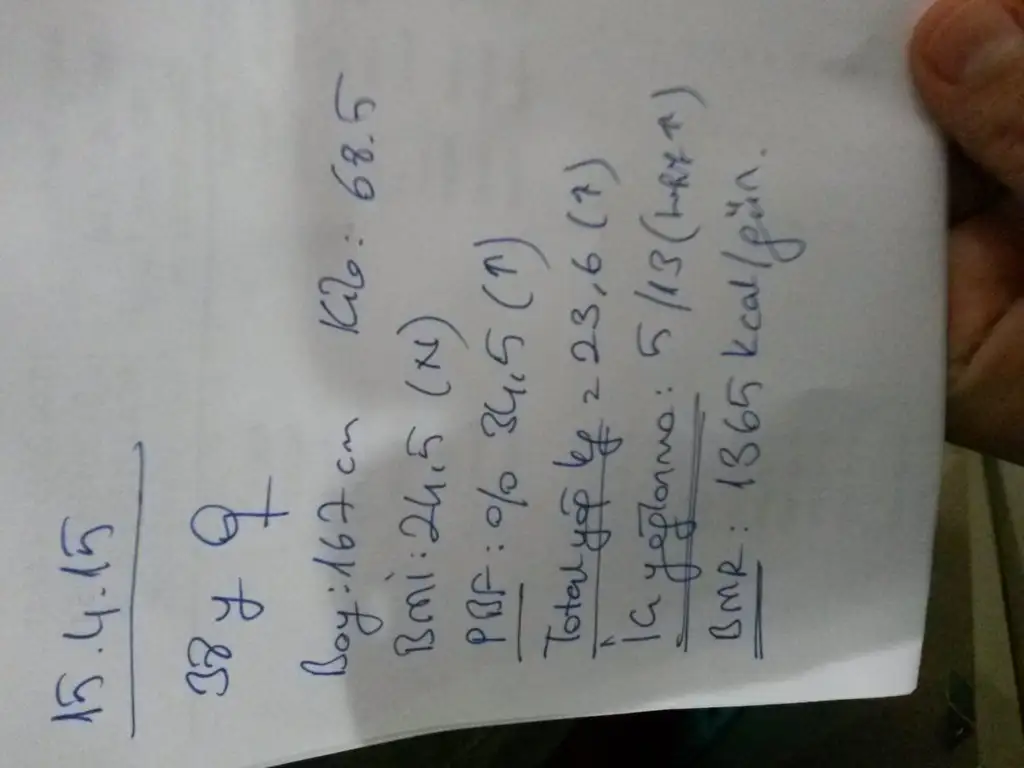 15.4.15
38 y ♀
Boy: 167 cm Kilo: 68.5
BMI: 24,5 (N)
PBF: % 34,5 (↑)
Total yağ kg = 23,6 (↑)
İç yağlanma: 5/13 (↑)
BMR: 1365 kcal/gün.